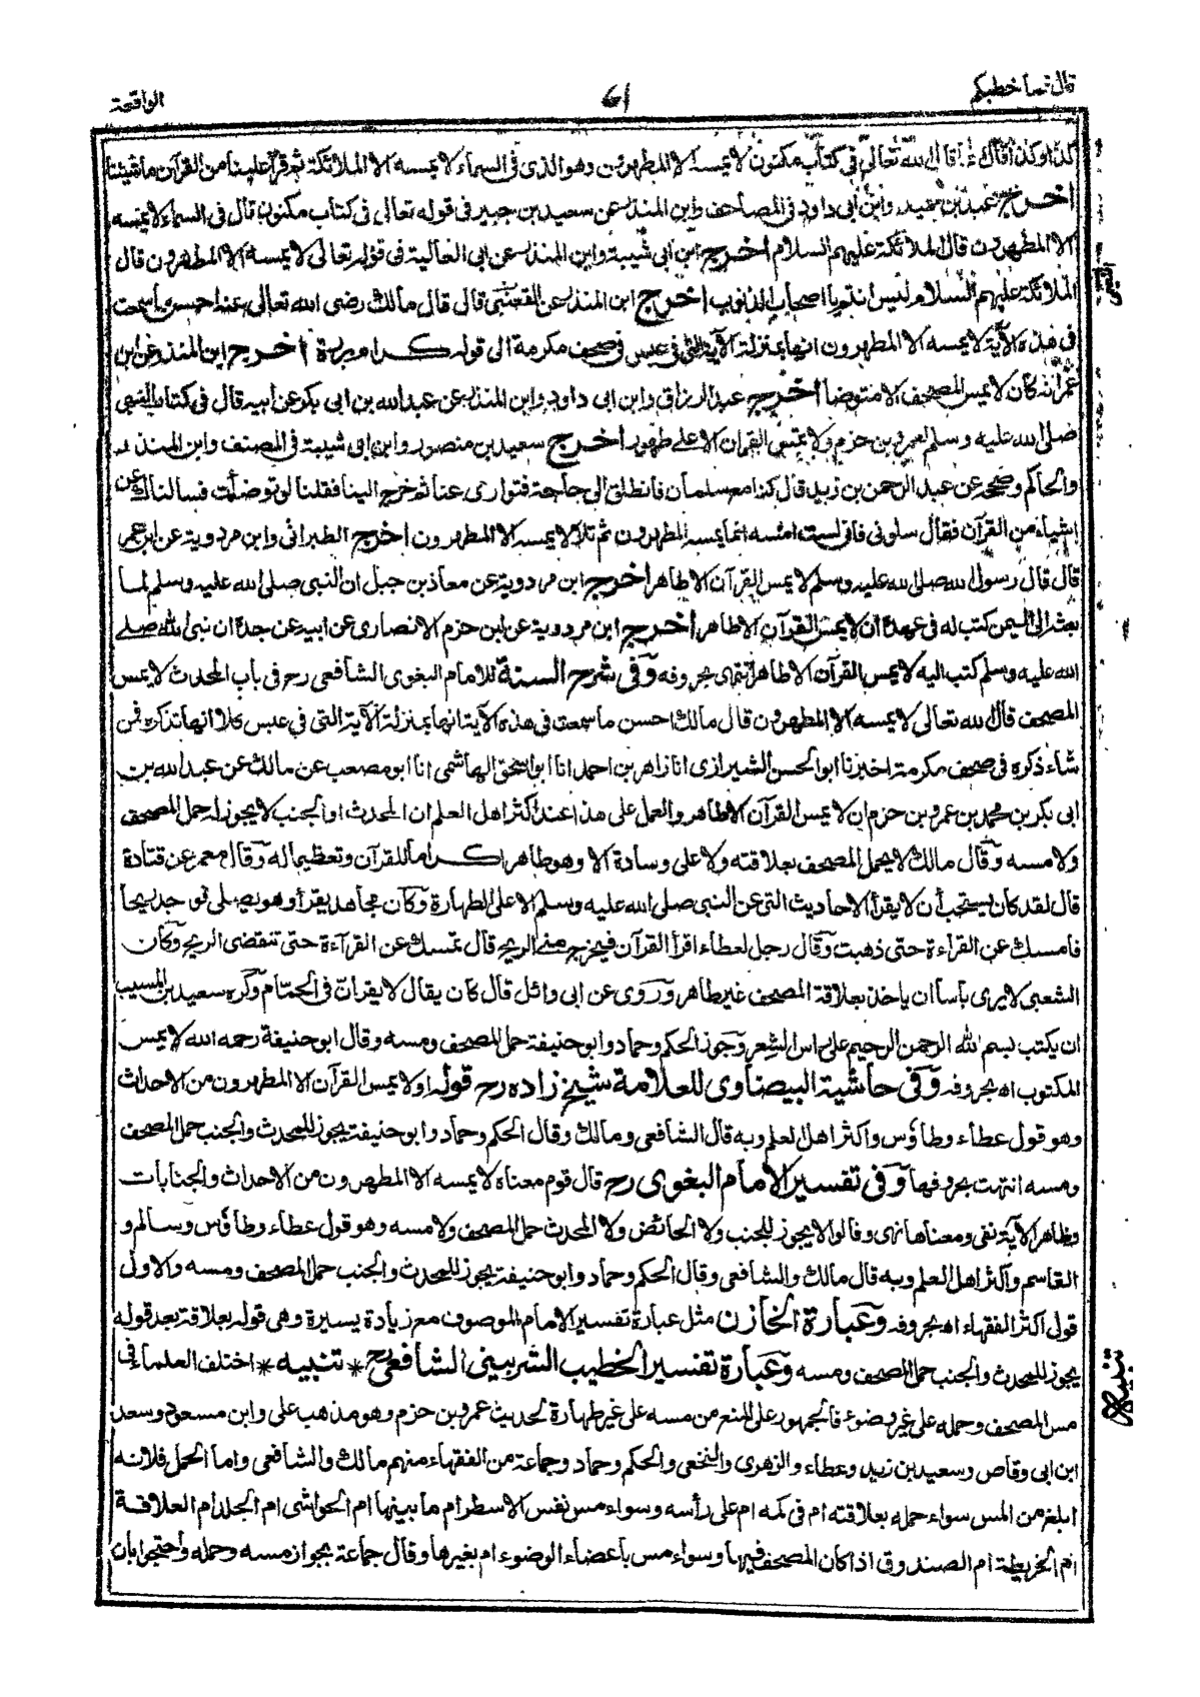 قال فما خطبكم
61
الواقعة
كذا وكذا قال الله تعالى فى كتاب مكنون لا يمسه الا المطهرون وهو الذى فى السماء لا يمسه الا الملائكة ثم قرأ علينا من القرآن ما شيئنا
اخرج عبد بن حميد وابن أبى داود فى المصاحف وابن المنذر عن سعيد بن جبير فى قوله تعالى فى كتاب مكنون قال فى السماء لا يمسه
الا المطهرون قال الملائكة عليهم السلام اخرج ابن ابى شيبة وابن المنذر عن ابى العالية فى قوله تعالى لا يمسه الا المطهرون قال
الملائكة عليهم السلام ليس انتم يا اصحاب الذنوب اخرج ابن المنذر عن القعنبى قال قال مالك رضى الله تعالى عنه احسن ما سمعت
فى هذه الآية لا يمسه الا المطهرون انها بمنزلة الآية التى فى عبس فى صحف مكرمة الى قوله كرام بررة اخرج ابن المنذر عن ابن
عمر انه كان لا يمس المصحف الا متوضأ اخرج عبد الرزاق وابن ابى داود وابن المنذر عن عبد الله بن ابى بكر عن ابيه قال فى كتاب النبى
صلى الله عليه وسلم لعمرو بن حزم ولا يمس القران الا على طهور اخرج سعيد بن منصور وابن ابى شيبة فى المصنف وابن المنذر
والحاكم وصححه عن عبد الرحمن بن زيد قال كنا مع سلمان فانطلق الى حاجة فتوارى عنا ثم خرج الينا فقلنا لو توضأت فسالناك عن
اشياء من القرآن فقال سلونى فانى لست امسه انما يمسه المطهرون ثم تلا لا يمسه الا المطهرون اخرج الطبرانى وابن مردوية عن ابن عمر
قال قال رسول الله صلى الله عليه وسلم لا يمس القرآن الا طاهر اخرج ابن مردوية عن معاذ بن جبل ان النبى صلى الله عليه وسلم لما
بعثه الى اليمن كتب له فى عهده ان لا يمس القرآن الا طاهر اخرج ابن مردوية عن ابن حزم الانصارى عن ابيه عن جده ان نبى الله صلى
الله عليه وسلم كتب اليه لا يمس القرآن الا طاهر انتهى بحروفه وفى شرح السنة للامام البغوى الشافعى رح فى باب المحدث لا يمس
المصحف قال الله تعالى لا يمسه الا المطهرون قال مالك احسن ما سمعت فى هذه الآية انها بمنزلة الآية التى فى عبس كلا انها تذكره فمن
شاء ذكره فى صحف مكرمة اخبرنا ابو الحسن الشيرازى انا زاهر بن احمد انا ابو اسحق الهاشمى انا ابو مصعب عن مالك عن عبد الله بن
ابى بكر بن محمد بن عمرو بن حزم ان لا يمس القرآن الا طاهر والعمل على هذا عند اكثر اهل العلم ان المحدث او الجنب لا يجوز له حمل المصحف
ولا مسه وقال مالك لا يحمل المصحف بعلاقته ولا على وسادة الا وهو طاهر اكراما للقرآن وتعظيما له وقال معمر عن قتادة
قال لقد كان يستحب أن لا يقرأ الاحاديث التى عن النبى صلى الله عليه وسلم الا على الطهارة وكان مجاهد يقرأ وهو يصلى فوجد ريحا
فامسك عن القراءة حتى ذهبت وقال رجل لعطاء اقرأ القرآن فيخرج منى الريح قال تمسك عن القرآءة حتى تنقضى الريح وكان
الشعبى لا يرى بأسا ان ياخذ بعلاقة المصحف غير طاهر وروى عن ابى وائل قال كان يقال لا يقرأن فى الحمام وكره سعيد بن المسيب
ان يكتب بسم الله الرحمن الرحيم على راس الشعر وجوز الحكم وحماد وابو حنيفة حمل المصحف ومسه وقال ابو حنيفة رحمه الله لا يمس
المكتوب اه بحروفه وفى حاشية البيضاوى للعلامة شيخ زاده رح قوله او لا يمس القرآن الا المطهرون من الاحداث
وهو قول عطاء وطاؤس واكثر اهل العلم وبه قال الشافعى ومالك وقال الحكم وحماد وابو حنيفة يجوز للمحدث والجنب حمل المصحف
ومسه انتهت بحروفها وفى تفسير الامام البغوى رح قال قوم معناه لا يمسه الا المطهرون من الاحداث والجنابات
وظاهر الآية نفى ومعناها نهى وقالوا لا يجوز للجنب ولا الحائض ولا المحدث حمل المصحف ولا مسه وهو قول عطاء وطاؤس وسالم و
القاسم واكثر اهل العلم وبه قال مالك والشافعى وقال الحكم وحماد وابو حنيفة يجوز للمحدث والجنب حمل المصحف ومسه والاول
قول اكثر الفقهاء اه بحروفه وعبارة الخازن مثل عبارة تفسير الامام الموصوف مع زيادة يسيرة وهى قوله بعلاقة بعد قوله
يجوز للمحدث والجنب حمل المصحف ومسه وعبارة تفسير الخطيب الشربينى الشافعى رح * تنبيه * اختلف العلماء فى
مس المصحف وحمله على غير وضوء فالجمهور على المنع من مسه على غير طهارة لحديث عمرو بن حزم وهو مذهب على وابن مسعود وسعد
ابن ابى وقاص وسعيد بن زيد وعطاء والزهرى والنخعى والحكم وحماد وجماعة من الفقهاء منهم مالك والشافعى واما الحمل فلانه
ابلغ من المس سواء حمله بعلاقته ام فى كمه ام على رأسه وسواء مس نفس الاسطر ام ما بينها ام الحواشى ام الجلد ام العلاقة
ام الخريطة ام الصندوق اذا كان المصحف فيها وسواء مس بأعضاء الوضوء ام بغيرها وقال جماعة بجواز مسه وحمله واحتجوا بان
تنبيه